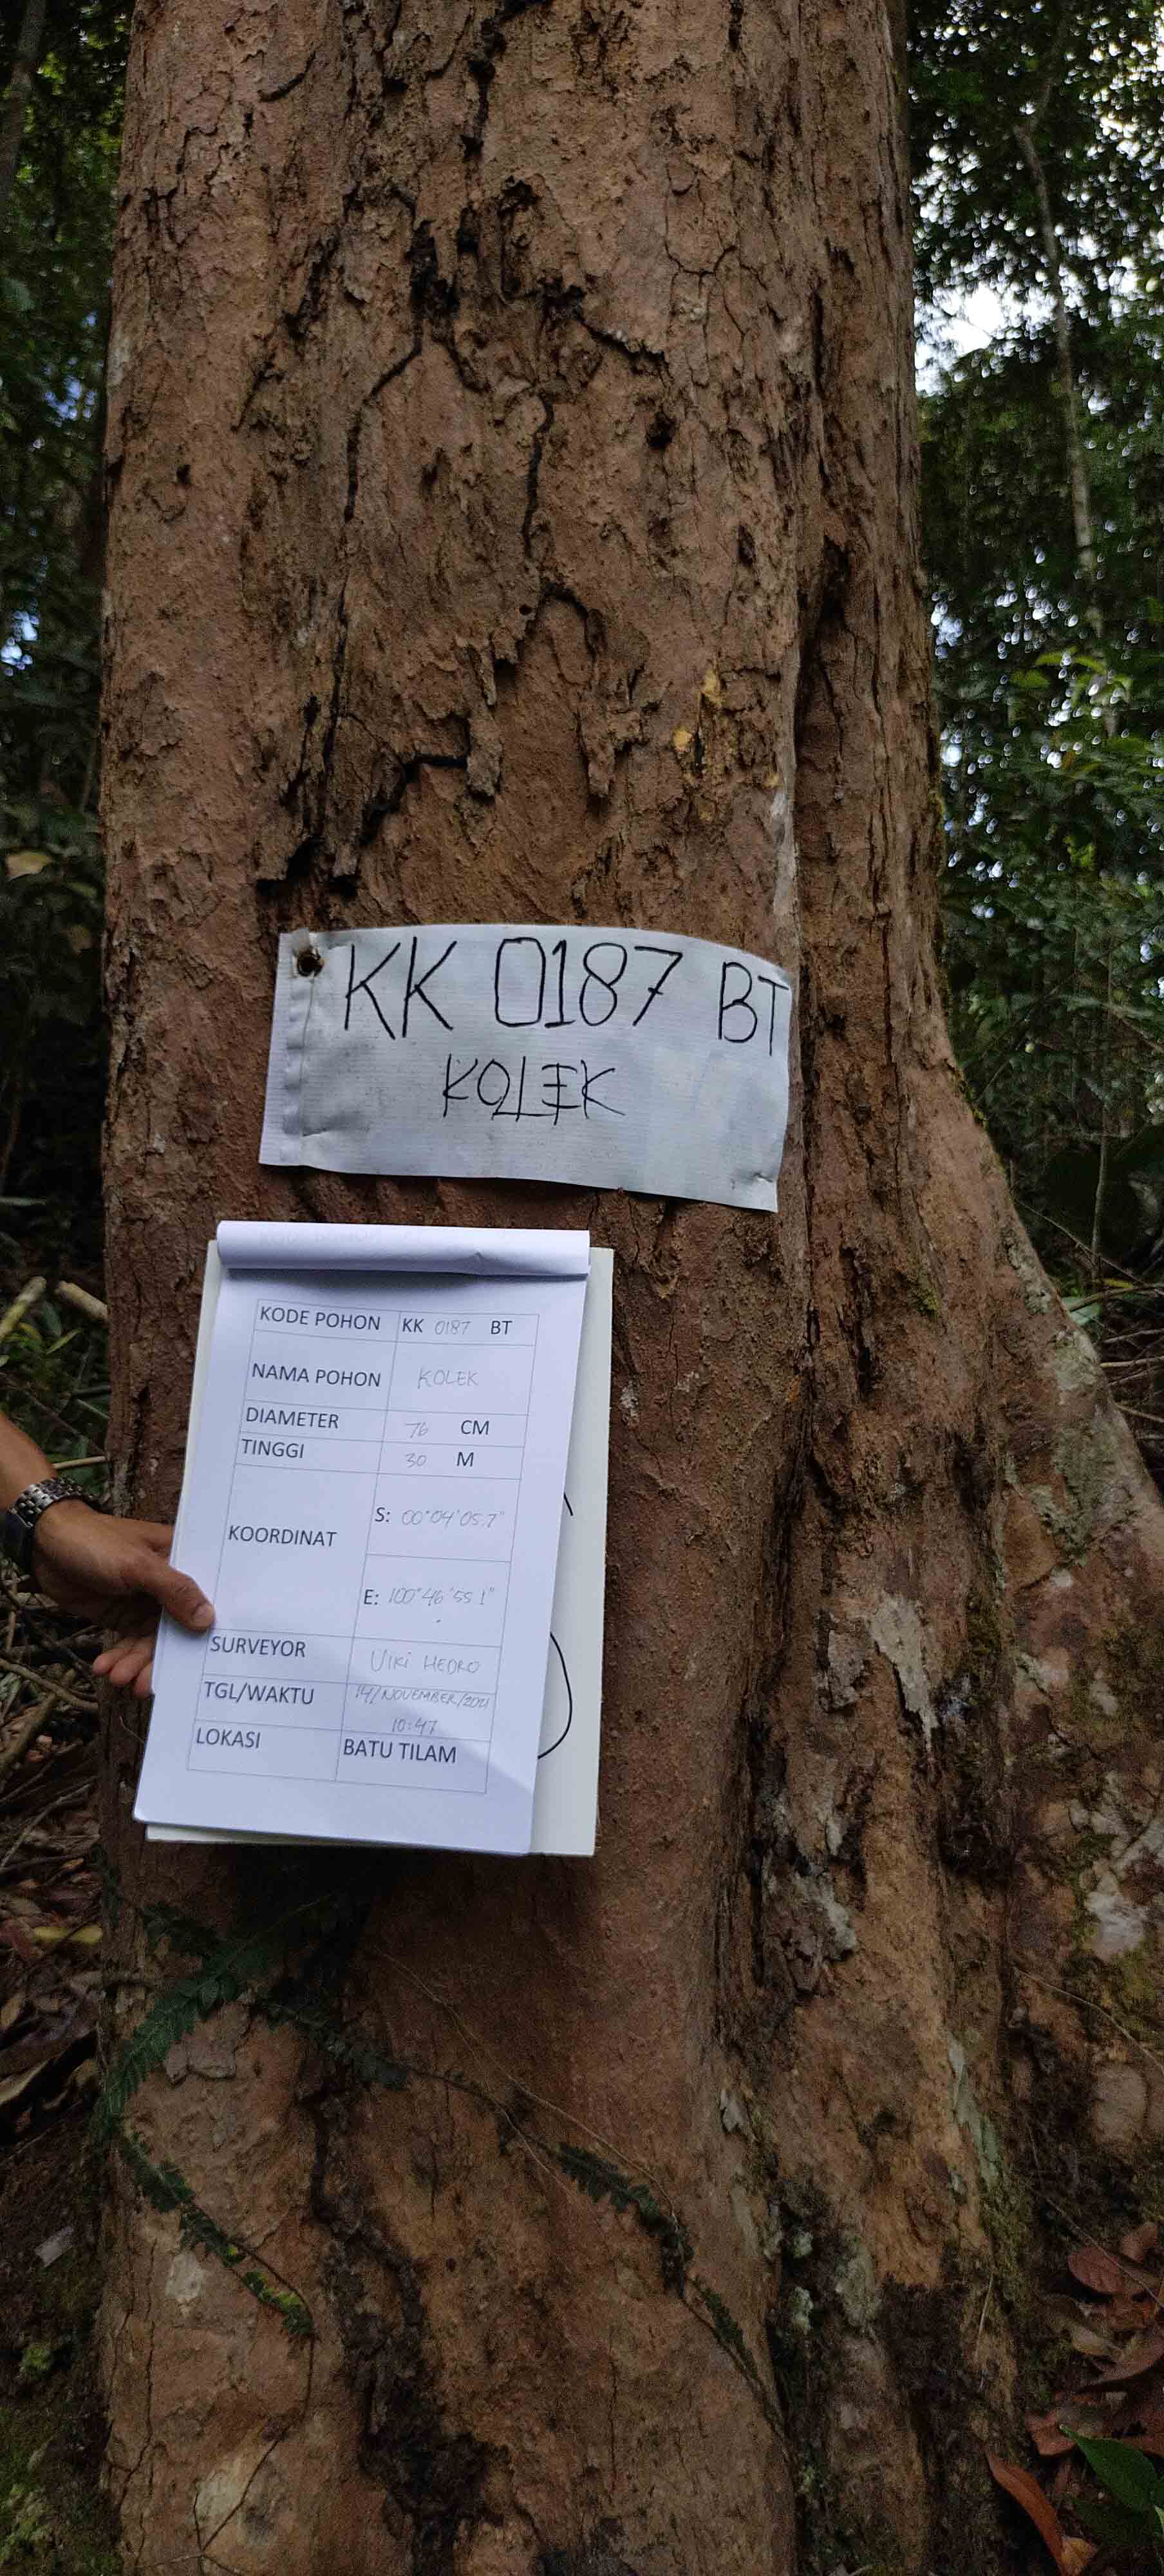 KK 0187 BT
KOLEK
KODE POHON KK 0187 BT
NAMA POHON KOLEK
DIAMETER 76 CM
TINGGI 30 M
KOORDINAT
S: 00°04'05.7"
E: 100°46'55.1"
SURVEYOR VIKI HEDRO
TGL/WAKTU 14/NOVEMBER/2021
10:47
LOKASI BATU TILAM